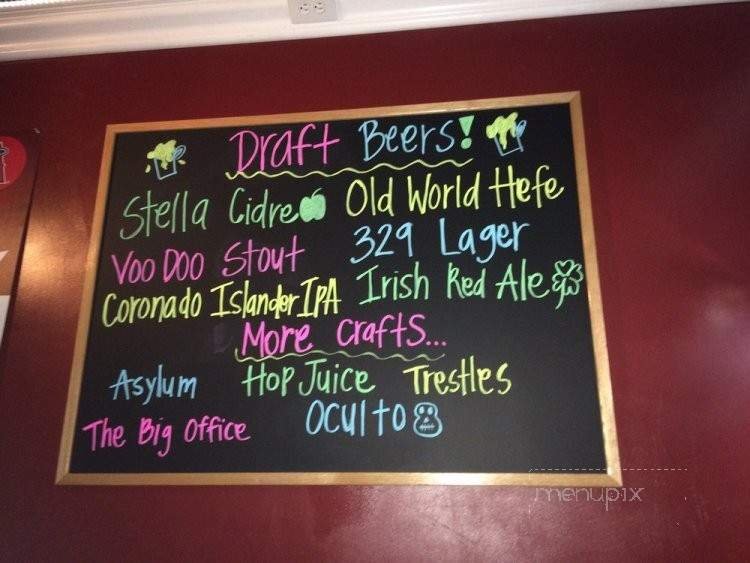 Draft Beers!
Stella Cidre Old World Hefe
Voo Doo Stout 329 Lager
Coronado Islander IPA Irish Red Ale
More Crafts...
Asylum Hop Juice Trestles
The Big Office Oculto
menupix